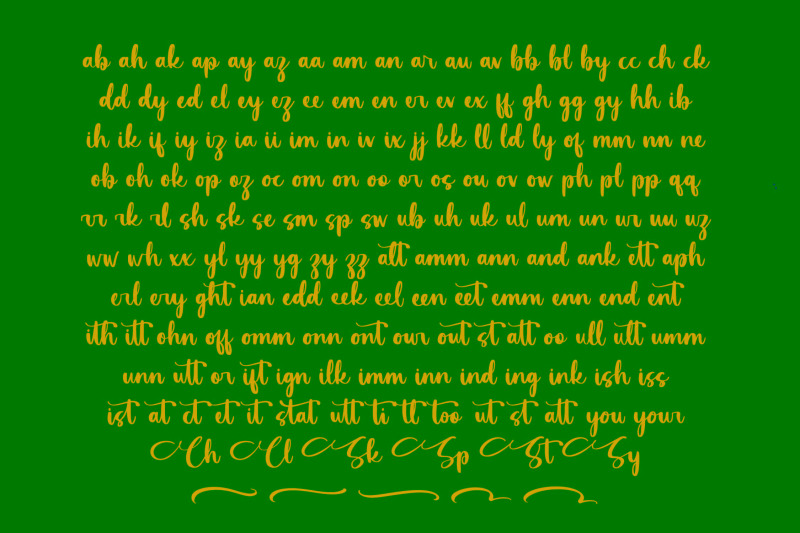 ab ah ak ap ay az aa am an ar au av bb bl by cc ch ck
dd dy ed el ey ez ee em en er ev ex ff gh gg gy hh ib
ih ik if iy iz ia ii im in iv ix jj kk ll ld ly of mm nn ne
ob oh ok op oz oc om on oo or os ou ov ow ph pl pp qq
rr rk rl sh sk se sm sp sw ub uh uk ul um un ur uu uz
ww wh xx yl yy yg zy zz alt amm ann and ank ett aph
erl ery ght ian edd eek eel een eet emm enn end ent
ith itt ohn off omm onn ont our out st att oo ull utt umm
unn utt or ift ign ilk imm inn ind ing ink ish iss
ist at ct et it stat utt ti tt too ut st att you your
Ch Cl Sk Sp St Sy